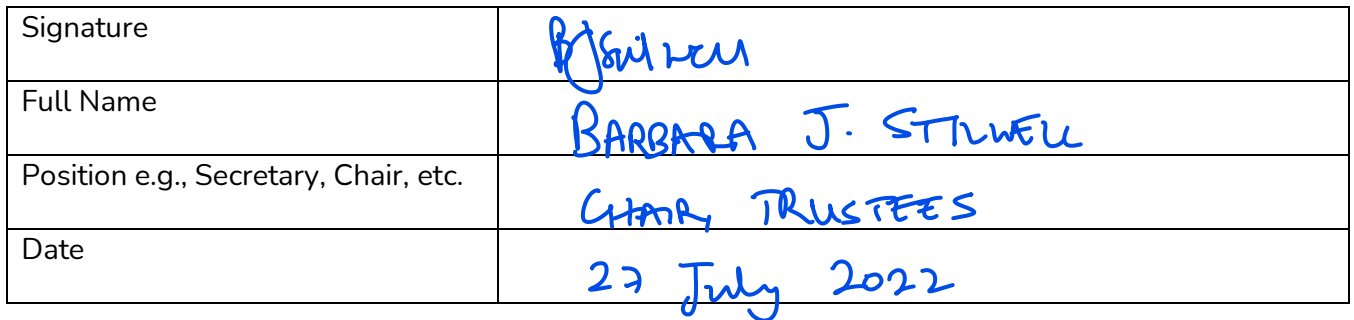 Signature BJStilwell
Full Name BARBARA J. STILWELL
Position e.g., Secretary, Chair, etc. CHAIR, TRUSTEES
Date 27 July 2022